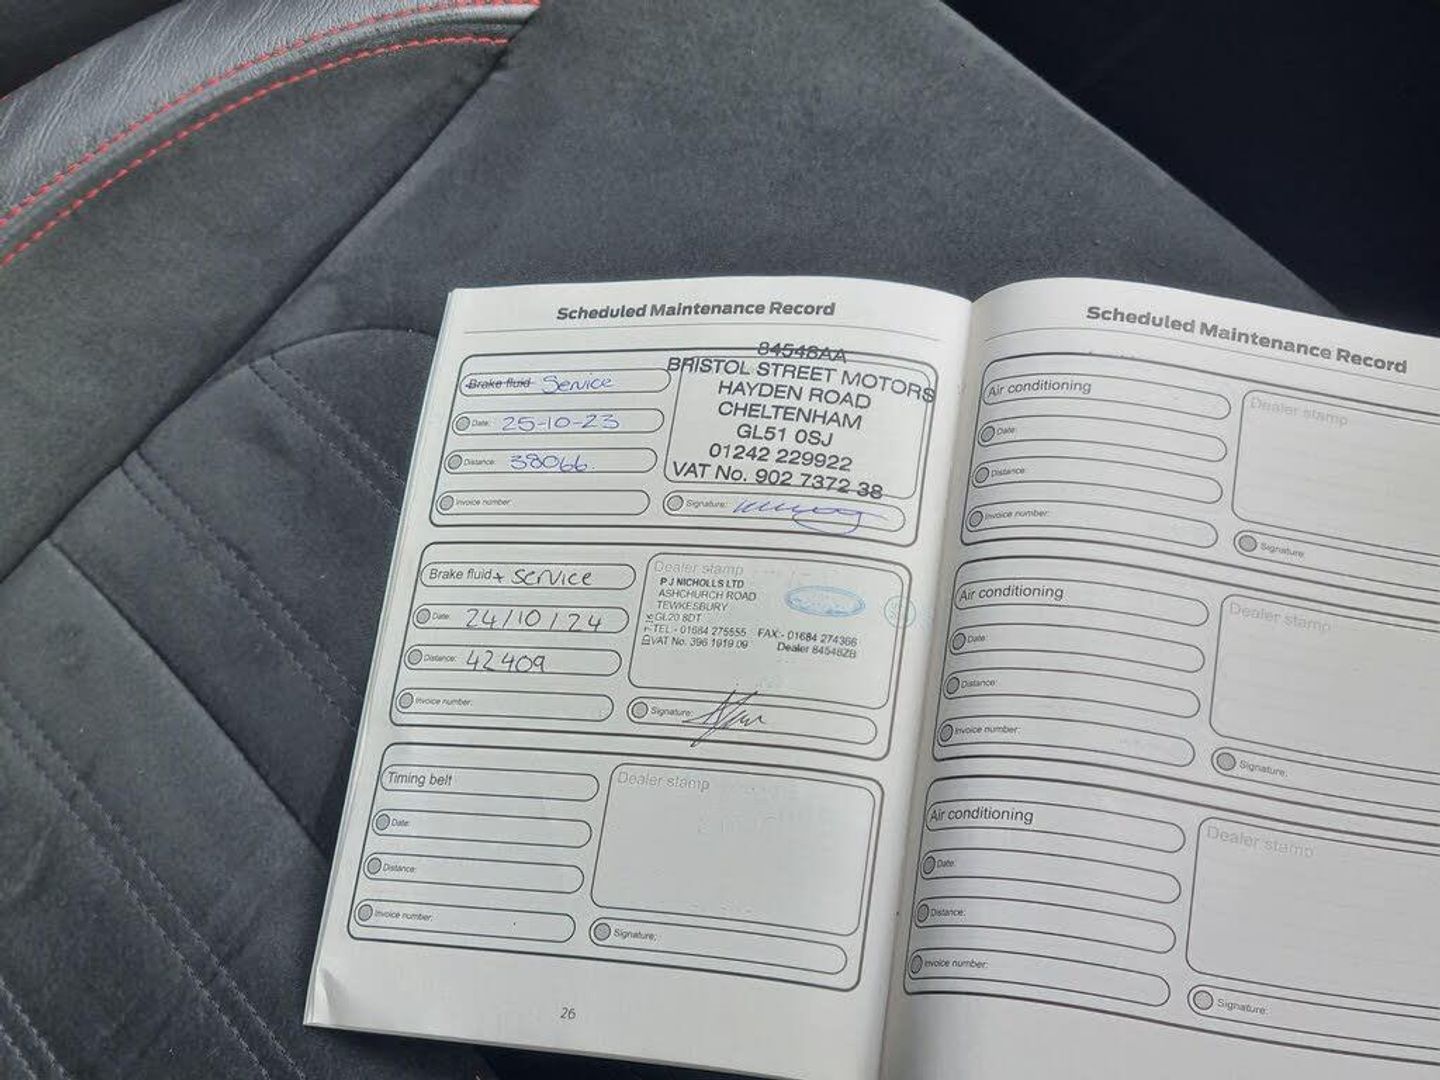 Scheduled Maintenance Record
84548AA
BRISTOL STREET MOTORS
HAYDEN ROAD
CHELTENHAM
GL51 0SJ
01242 229922
VAT No. 902 7372 38
Brake fluid Service
Date: 25-10-23
Distance: 38066.
Invoice number:
Signature:
Brake fluid + Service
Date: 24/10/24
Distance: 42409
Invoice number:
Dealer stamp
P J NICHOLLS LTD
ASHCHURCH ROAD
TEWKESBURY
GL20 8DT
TEL - 01684 275555 FAX - 01684 274366
VAT No. 396 1919 09 Dealer 84548ZB
Signature:
Timing belt
Date:
Distance:
Invoice number:
Dealer stamp
Signature:
26
Scheduled Maintenance Record
Air conditioning
Date:
Distance:
Invoice number:
Dealer stamp
Signature:
Air conditioning
Date:
Distance:
Invoice number:
Dealer stamp
Signature:
Air conditioning
Date:
Distance:
Invoice number:
Dealer stamp
Signature: